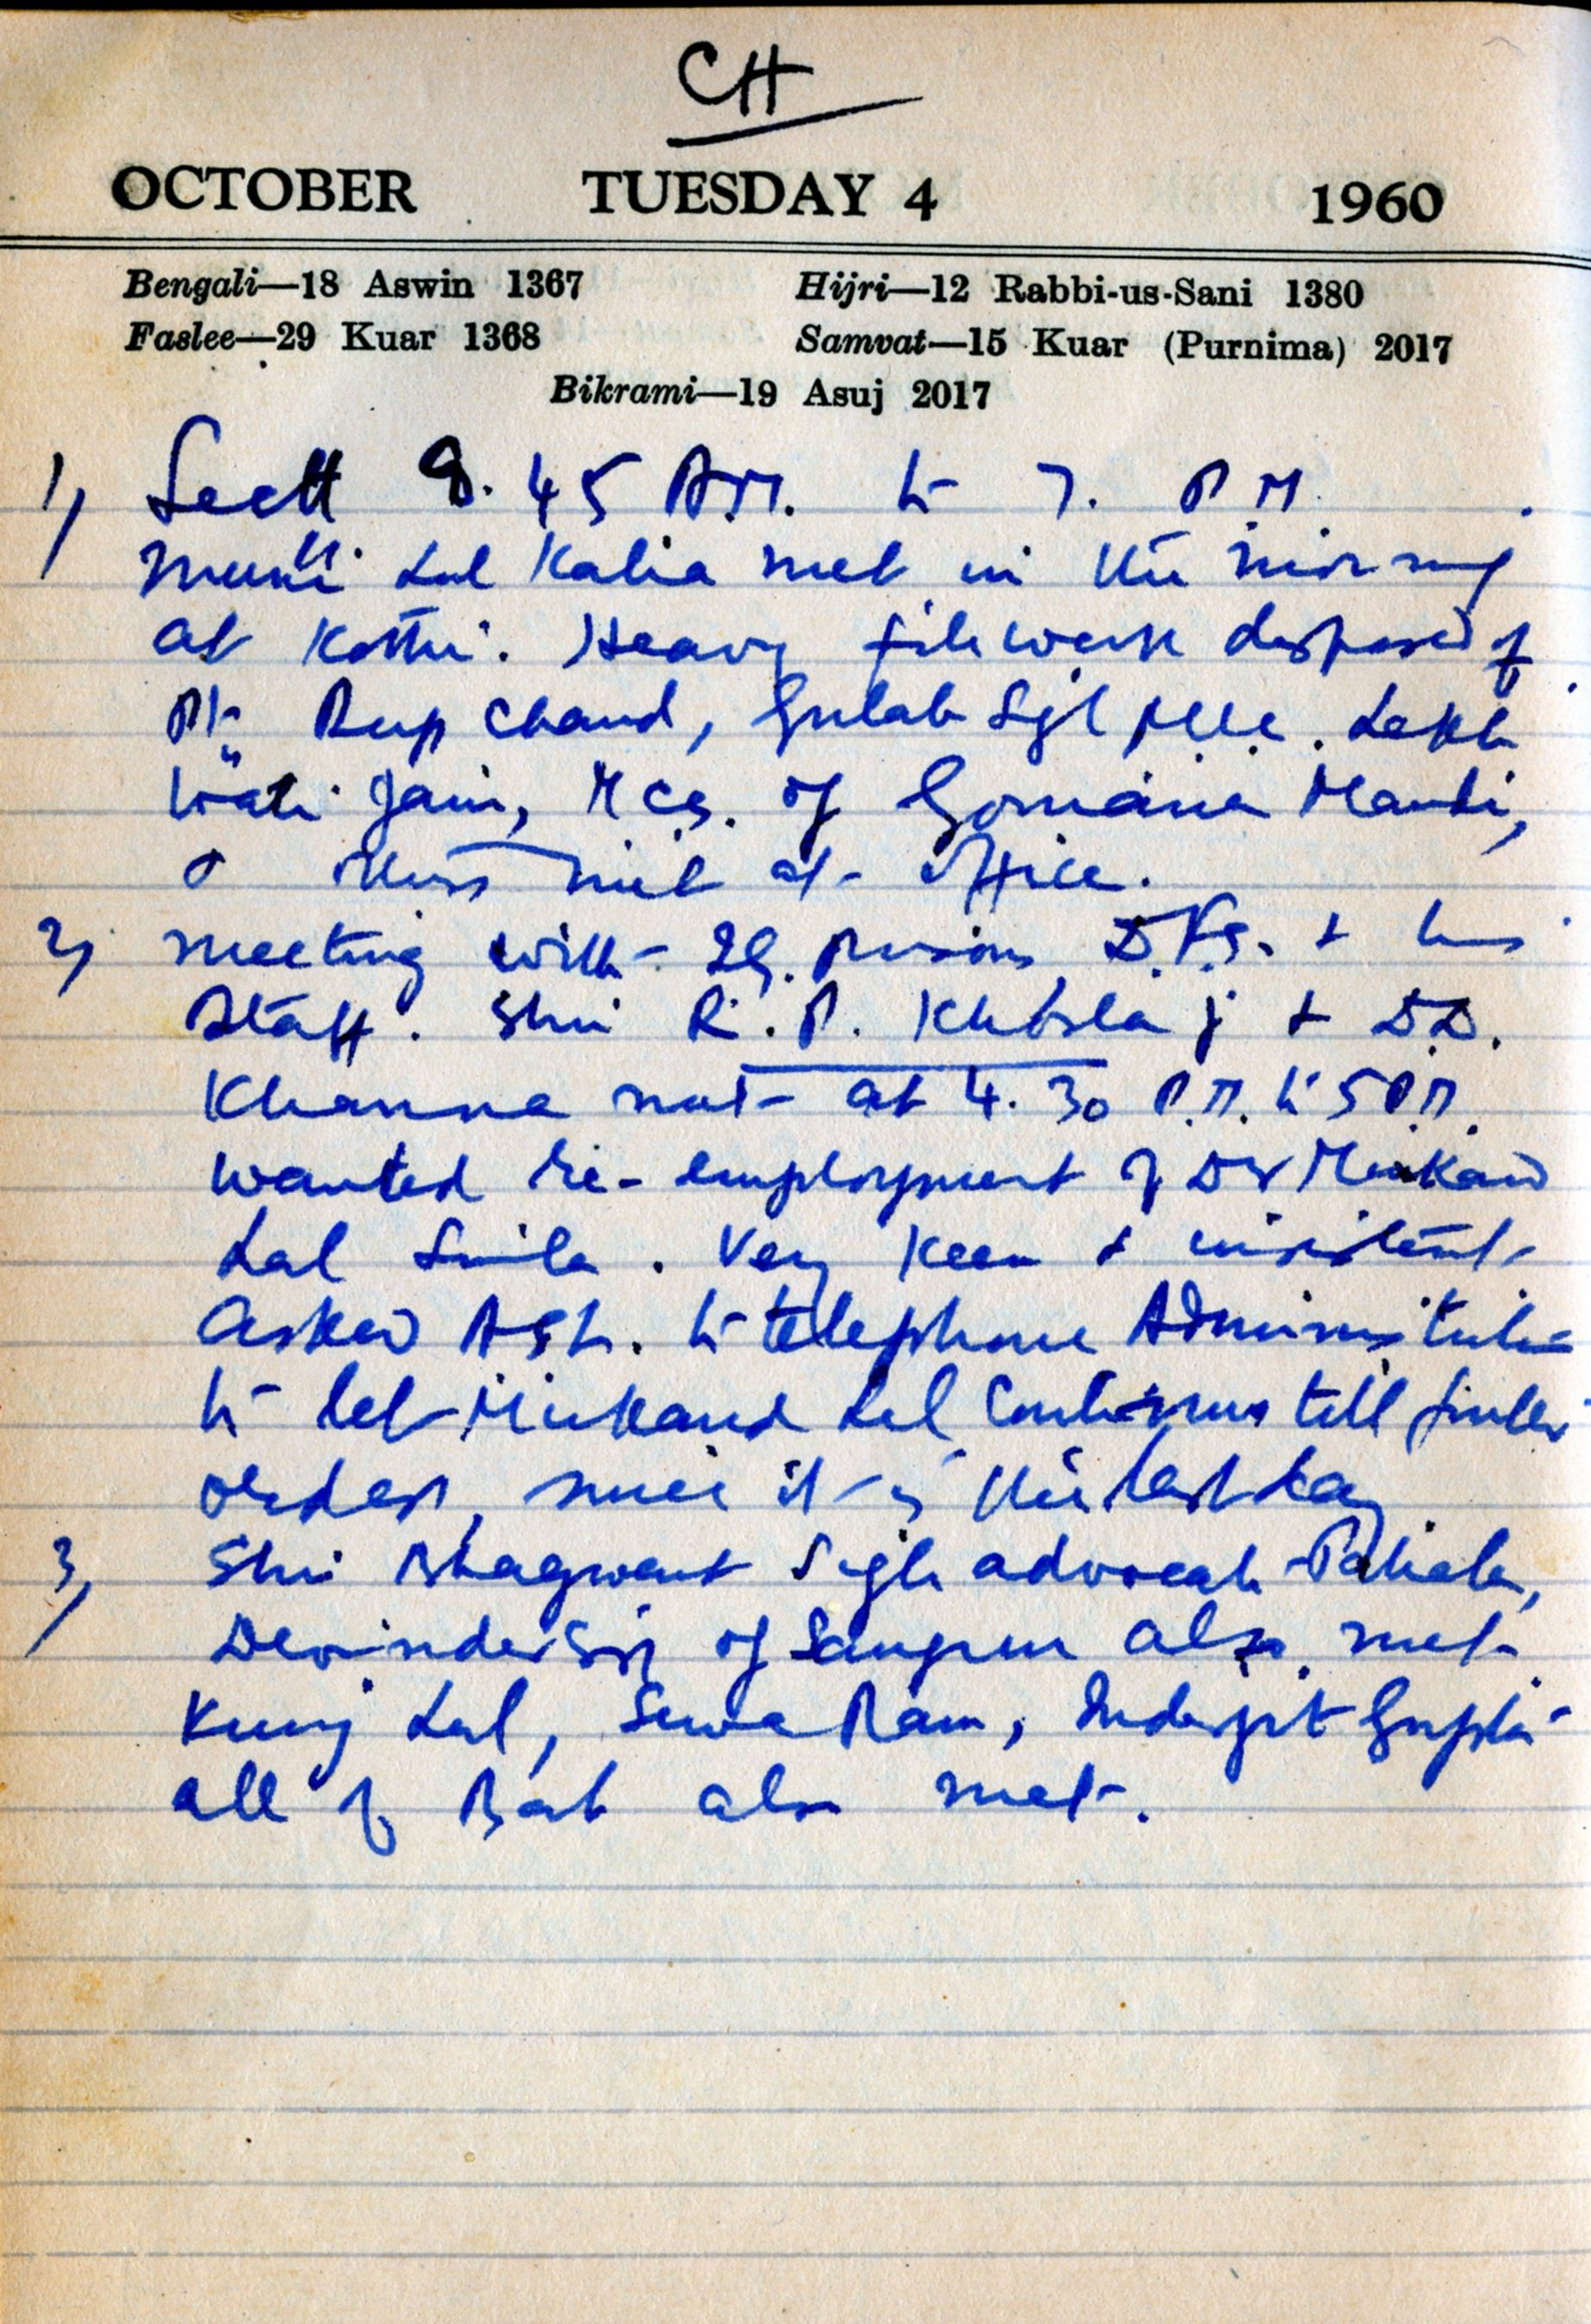 CH
OCTOBER TUESDAY 4 1960
Bengali—18 Aswin 1367 Hijri—12 Rabbi-us-Sani 1380
Faslee—29 Kuar 1368 Samvat—15 Kuar (Purnima) 2017
Bikrami—19 Asuj 2017
1) Sectt 9.45 A.M. to 7. P.M.
Lal Kalia met in the morning
at Kothi. Heavy file work disposed of
Pt. Rup Chand, Gulab Sgh MLA. Lekh
Wati Jain, MCs. of Mandi,
& others met at office.
2) Meeting with IG. Prisons, & his
Staff. Shri R.P. Khosla j & D.D.
Khanna met at 4.30 P.M. to 5 P.M.
wanted re-employment of Dr Mukand
Lal. Very keen & insistent
Asked to telephone Administrator
to let Mukand Lal continue till further
orders, since it is the last day
3) Shri Bhagwant Sigh advocate Patiala,
Devinder Sigh of Sangrur also met
Kunj Lal, Sewa Ram, Inderjit Gupta
all of also met.